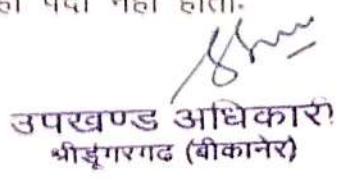 नहीं होता.
उपखण्ड अधिकारी
श्रीडूंगरगढ (बीकानेर)